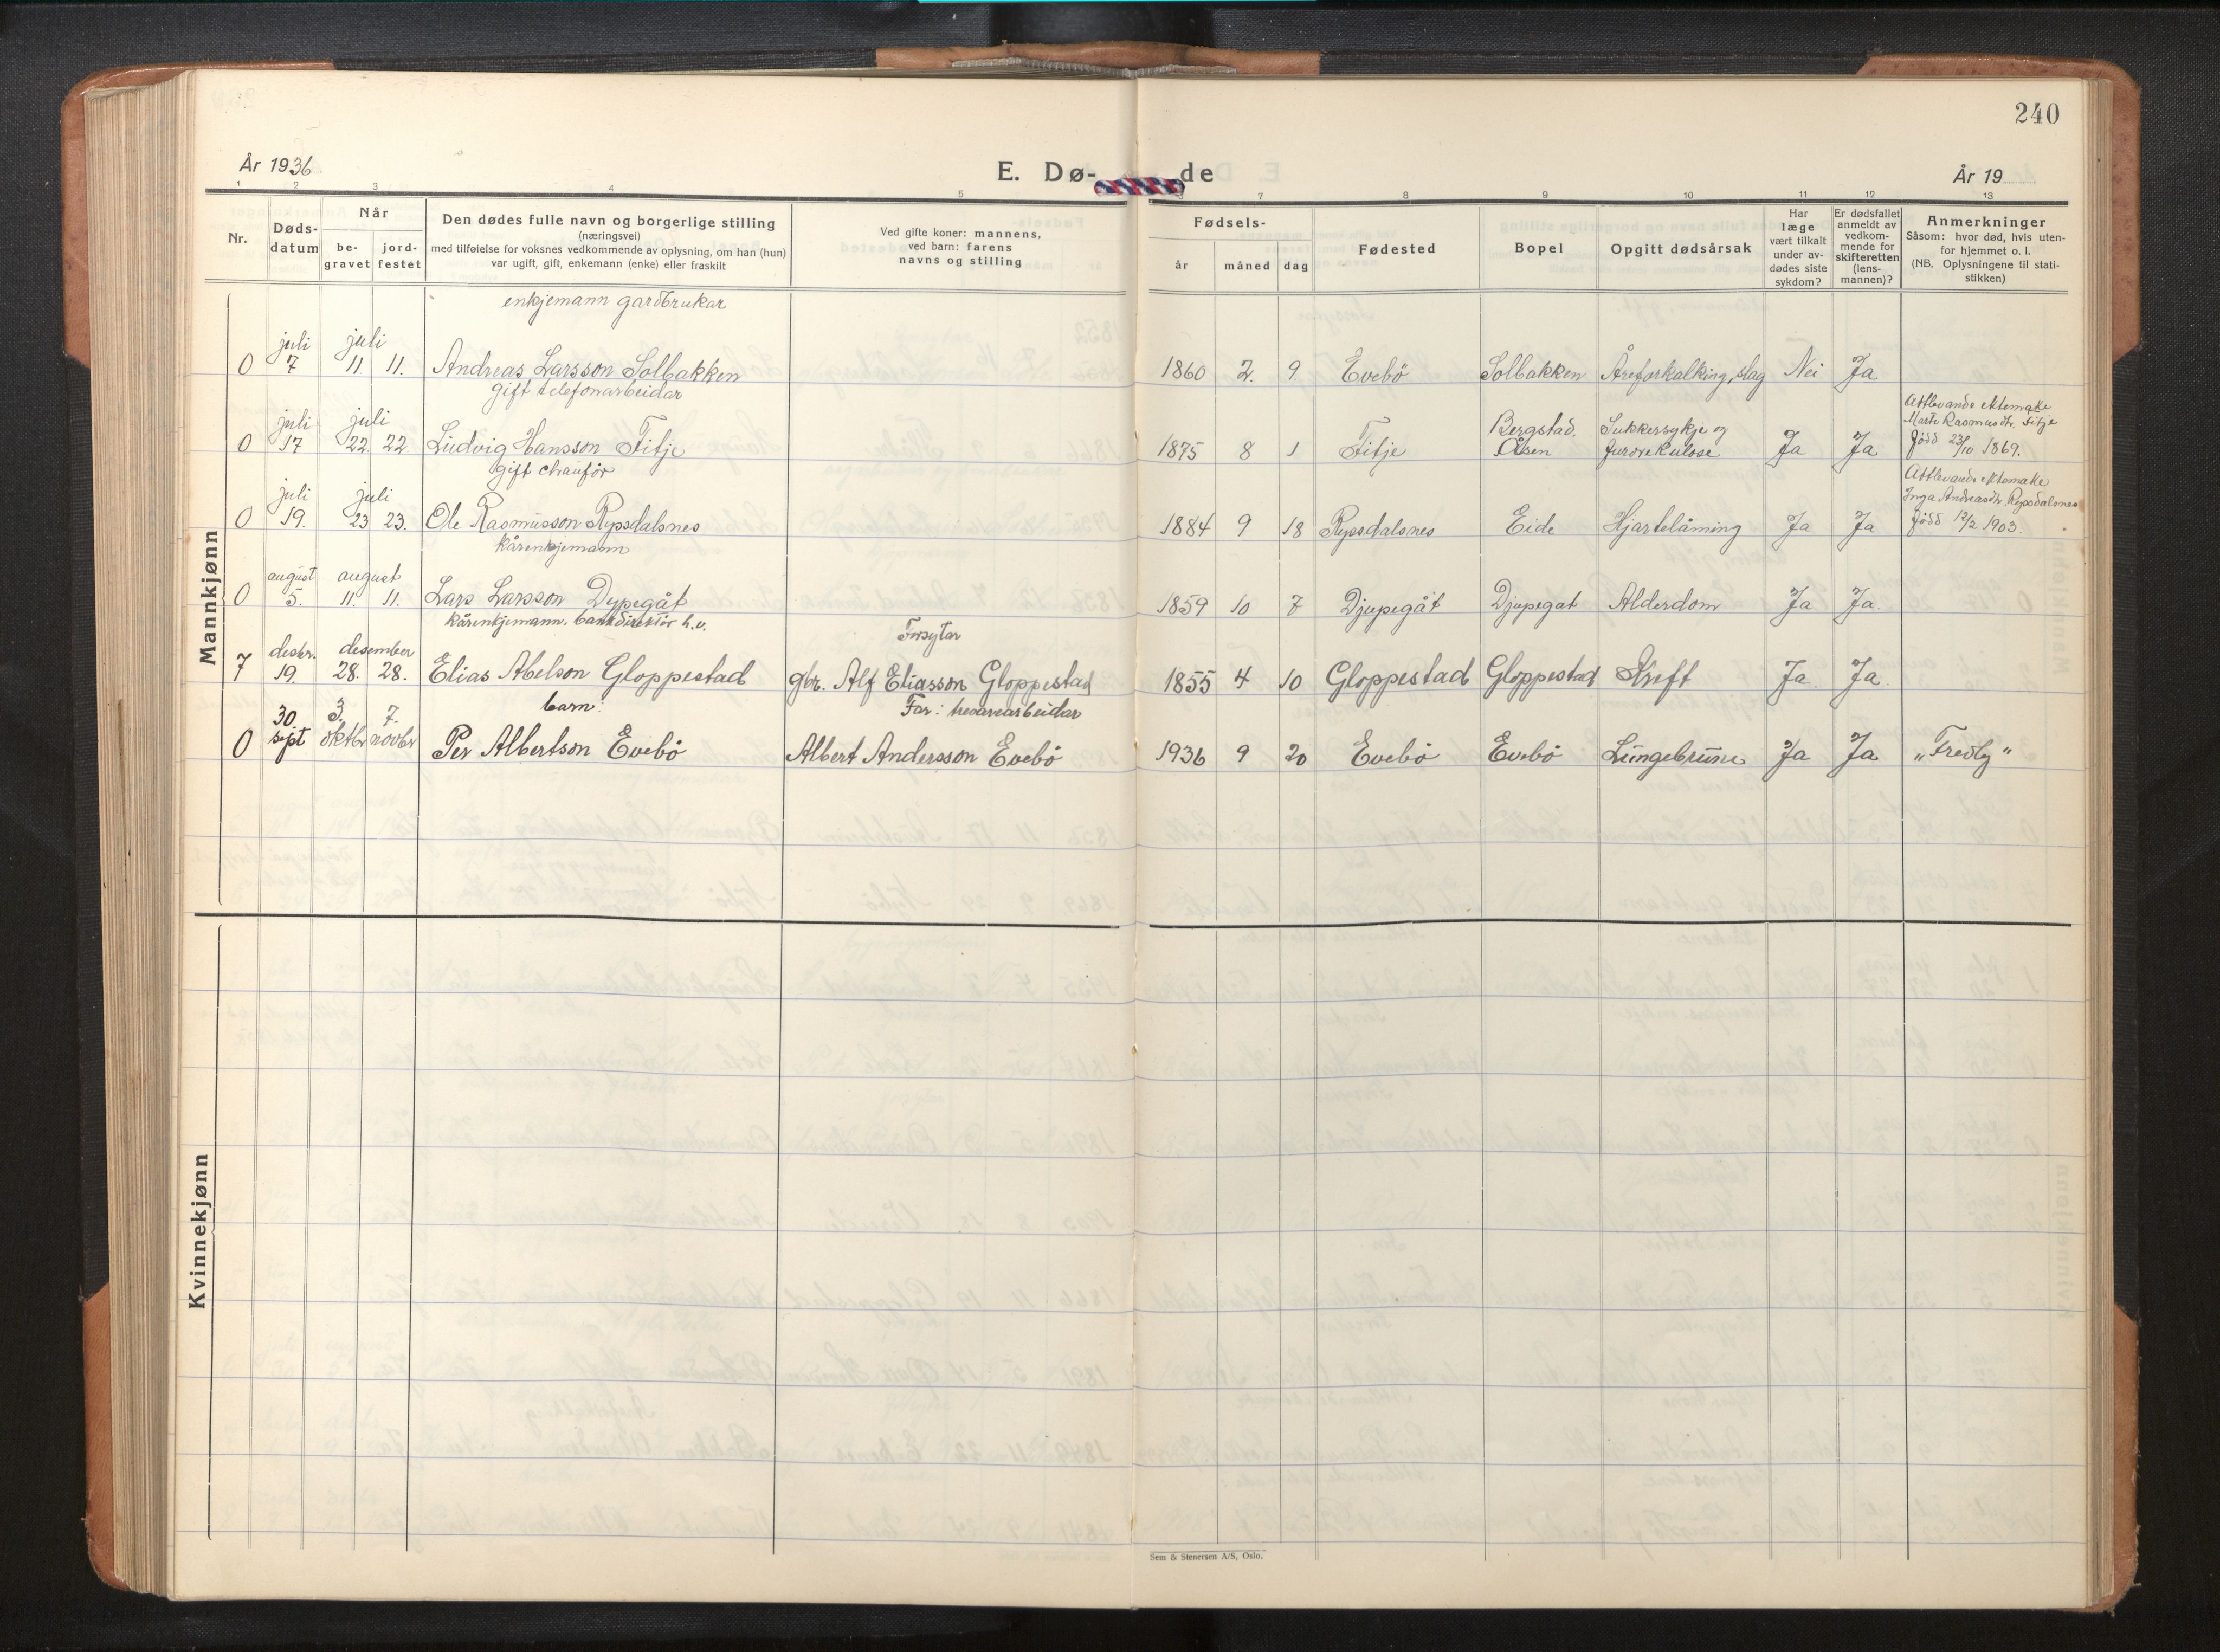 240
År 1936
E. Dø-
de
År 19
1 2 3 4 5 7 8 9 10 11 12 13
Nr.
Døds-
datum
Når
be-
gravet
jord-
festet
Den dødes fulle navn og borgerlige stilling
(næringsvei)
med tilføielse for voksnes vedkommende av oplysning, om han (hun)
var ugift, gift, enkemann (enke) eller fraskilt
Ved gifte koner: mannens,
ved barn: farens
navns og stilling
Fødsels-
år måned dag
Fødested
Bopel
Opgitt dødsårsak
Har
læge
vært tilkalt
under av-
dødes siste
sykdom?
Er dødsfallet
anmeldt av
vedkom-
mende for
skifteretten
(lens-
mannen)?
Anmerkninger
Såsom: hvor død, hvis uten-
for hjemmet o. l.
(NB. Oplysningene til stati-
stikken)
Mannkjønn
enkjemann gardbrukar
juli juli
0 7 11. 11. Andreas Larsson Solbakken 1860 2. 9 Evebö Solbakken Åreforkalking, slag Nei Ja
gift telefonarbeidar
juli juli
0 17 22. 22. Ludvig Hansson Fitje 1875 8 1 Fitje Bergstad, Åsen Sukkersykje og furorekulose Ja Ja
Attlevande ektemake
Marte Rasmusdtr. Fitje
född 23/10 1869.
gift chauför
juli juli
0 19. 23 23. Ole Rasmusson Rypsdalsnes 1884 9 18 Rypsdalsnes Eide Hjartelåming Ja Ja
Attlevande ektemake
Inga Andreasdtr. Rypsdalsnes
född 12/2 1903.
kårenkjemann
august august
0 5. 11. 11. Lars Larsson Dypegåt 1859 10 7 Djupegåt Djupegat Alderdom Ja Ja.
kårenkjemann, bankdirektör h.v.
Forsytar
desbr. desember
7 19. 28. 28. Elias Abelson Gloppestad gbr. Alf Eliasson Gloppestad 1855 4 10 Gloppestad Gloppestad Kreft Ja. Ja.
barn: Far: trevarearbeidar
30 3. 7.
0 sept oktbr novbr Per Albertson Evebö Albert Andersson Evebö 1936 9 20 Evebö Evebö Lungebrune Ja Ja „Fredly“
Kvinnekjønn
Sem & Stenersen A/S, Oslo.